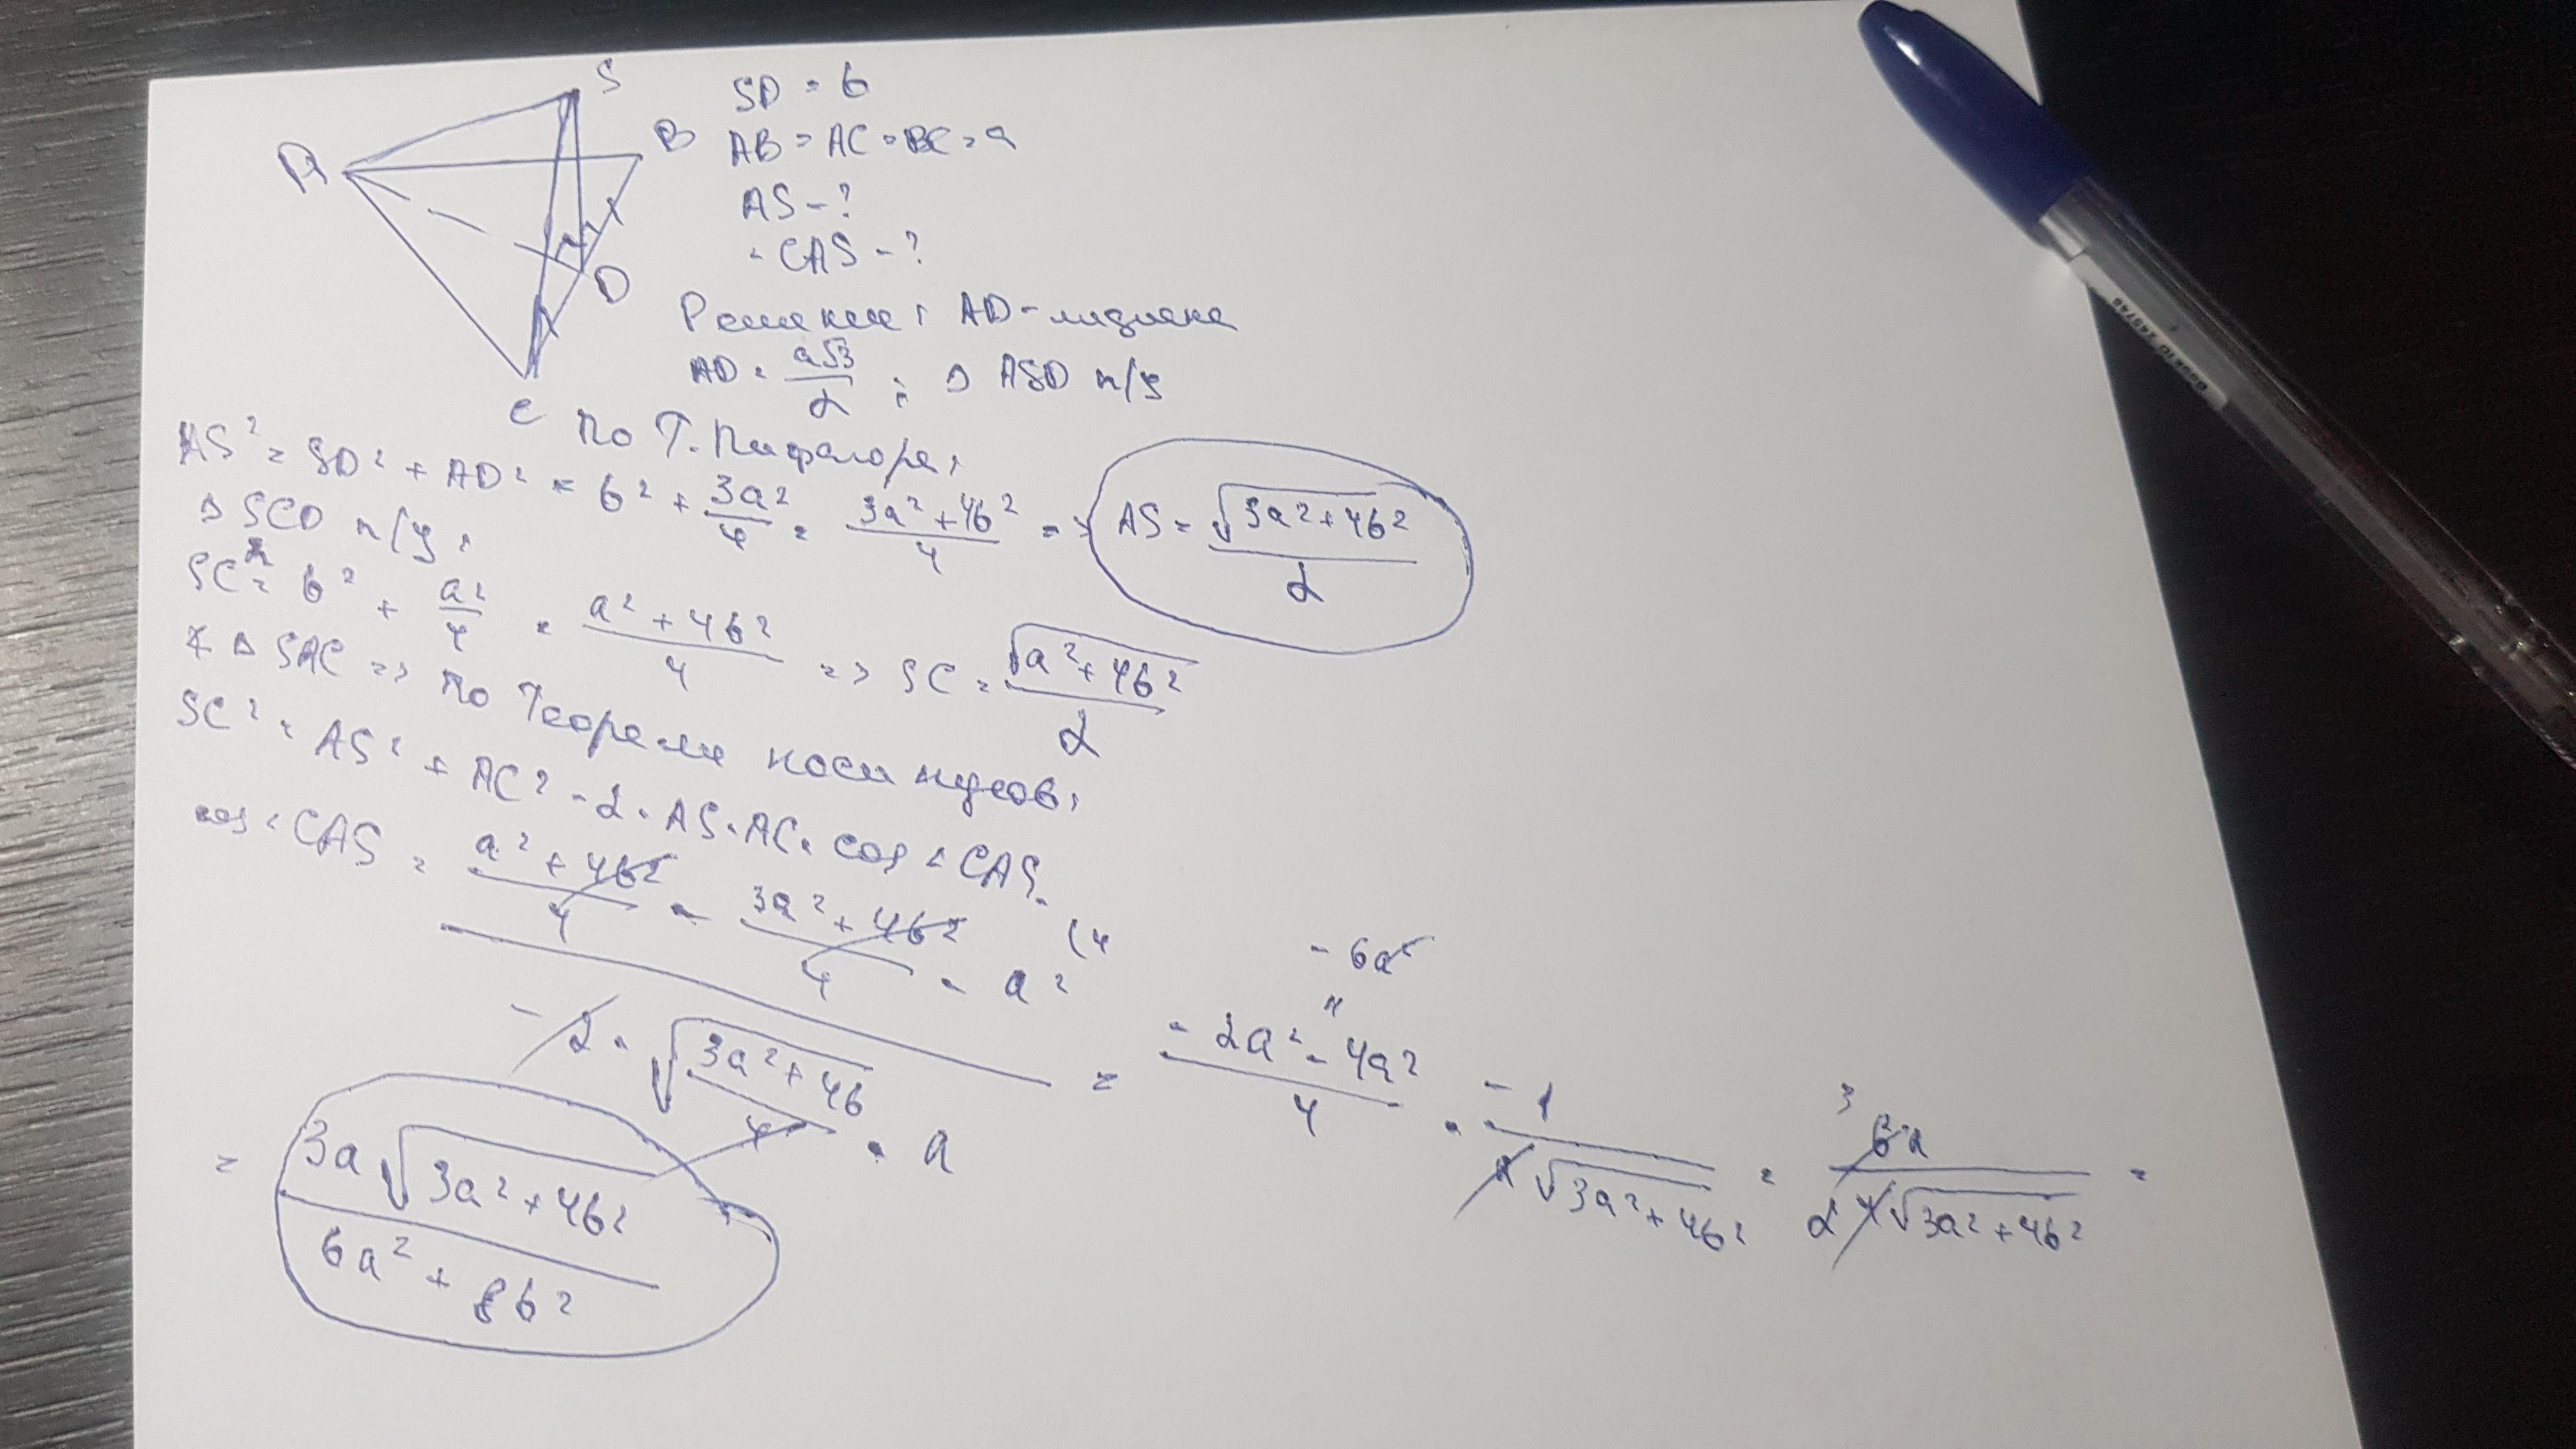 S
A
B
D
C
SD = b
AB = AC = BC = a
AS - ?
∠CAS - ?
Решение: AD - медиана
AD = a√3/2 ; △ ASD п/у
По Т. Пифагора:
AS² = SD² + AD² = b² + 3a²/4 = (3a²+4b²)/4 => AS = √(3a²+4b²)/2
△ SCD п/у:
SC² = b² + a²/4 = (a²+4b²)/4 => SC = √(a²+4b²)/2
△ SAC => по Теореме косинусов:
SC² = AS² + AC² - 2·AS·AC·cos∠CAS
cos∠CAS = ((a²+4b²)/4 - (3a²+4b²)/4 - a²)/(-2·√((3a²+4b)/4)·a) = (-2a²-4a²)/4 · -1/(a√(3a²+4b²)) = 6a/(4√(3a²+4b²)) =
(4
-6a²
"
3
2
= 3a√(3a²+4b²)/(6a²+8b²)